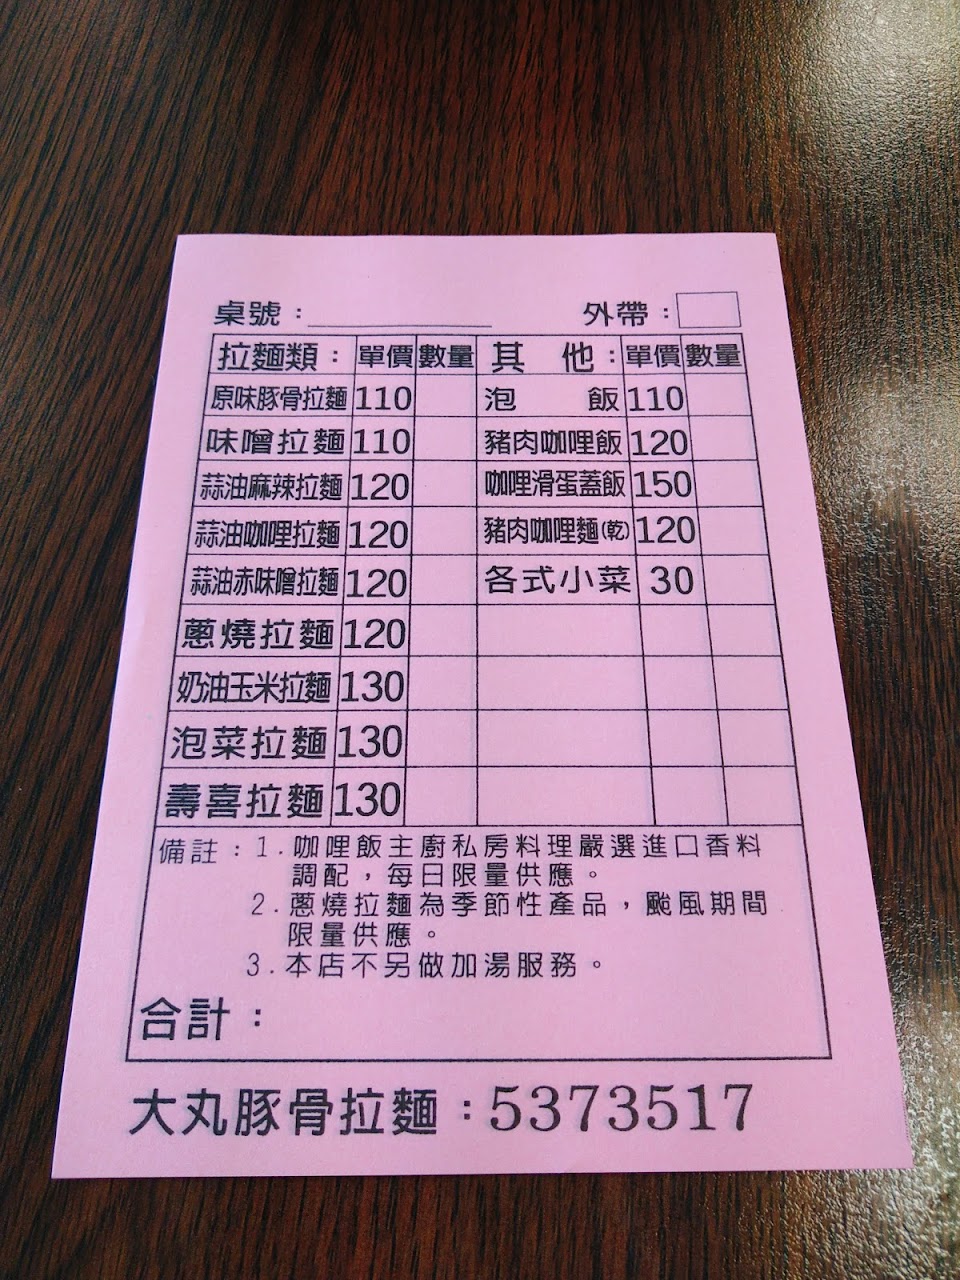 桌號：＿＿＿＿＿＿ 外帶：□
拉麵類： 單價 數量 其 他： 單價 數量
原味豚骨拉麵 110 泡 飯 110
味噌拉麵 110 豬肉咖哩飯 120
蒜油麻辣拉麵 120 咖哩滑蛋蓋飯 150
蒜油咖哩拉麵 120 豬肉咖哩麵(乾) 120
蒜油赤味噌拉麵 120 各式小菜 30
蔥燒拉麵 120
奶油玉米拉麵 130
泡菜拉麵 130
壽喜拉麵 130
備註：1.咖哩飯主廚私房料理嚴選進口香料
調配，每日限量供應。
2.蔥燒拉麵為季節性產品，颱風期間
限量供應。
3.本店不另做加湯服務。
合計：
大丸豚骨拉麵：5373517